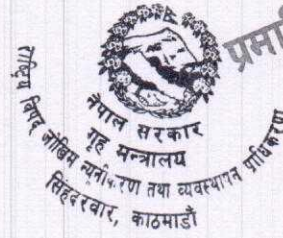 प्रमाि
नेपाल सरकार
गृह मन्त्रालय
राष्ट्रिय विपद जोखिम न्यूनीकरण तथा व्यवस्थापन प्राधिकरण
सिंहदरबार, काठमाडौं